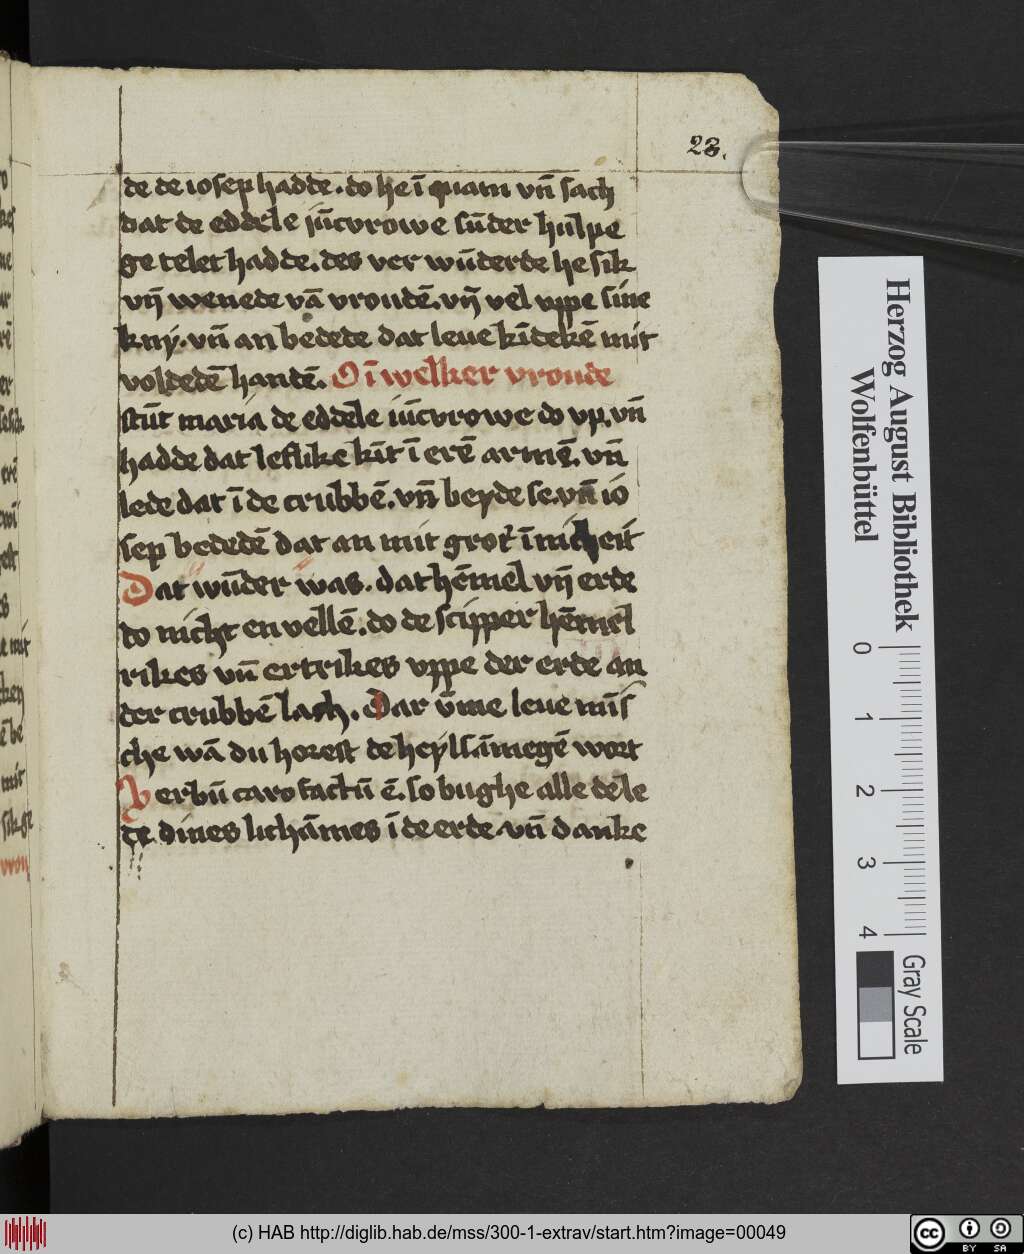 23.
de de iosep hadde. do he ī quam vn̄ sach
dat de eddele jūcvrowe sūder hulpe
ge telet hadde. des vor wūderde he sik
vn̄ wenede vā vroudē. vn̄ vel vppe sine
kny. vn̄ an bedede dat leue kīdekē mit
voldedē handē. O ī welker vroude
stūt maria de eddele iūcvrowe do vp. vn̄
hadde dat leflike kīt ī erē armē. vn̄
lede dat ī de crubbē. vn̄ beyde se. vn̄ io
sep bededē dat an mit grot' īnicheit
Dat wūder was. dat hēmel vn̄ erde
do nicht en vellē. do de scipper hēmel
rikes vn̄ ertrikes vppe der erde an
der crubbē lach. Dar v̄me leue mīs
che wā du horest de heylsāmegē wort
Verbū caro factū ē. so bughe alle dele
te dines lichāmes ī de erde vn̄ danke
Herzog August Bibliothek
Wolfenbüttel
0 1 2 3 4
Gray Scale
(c) HAB http://diglib.hab.de/mss/300-1-extrav/start.htm?image=00049
cc BY SA